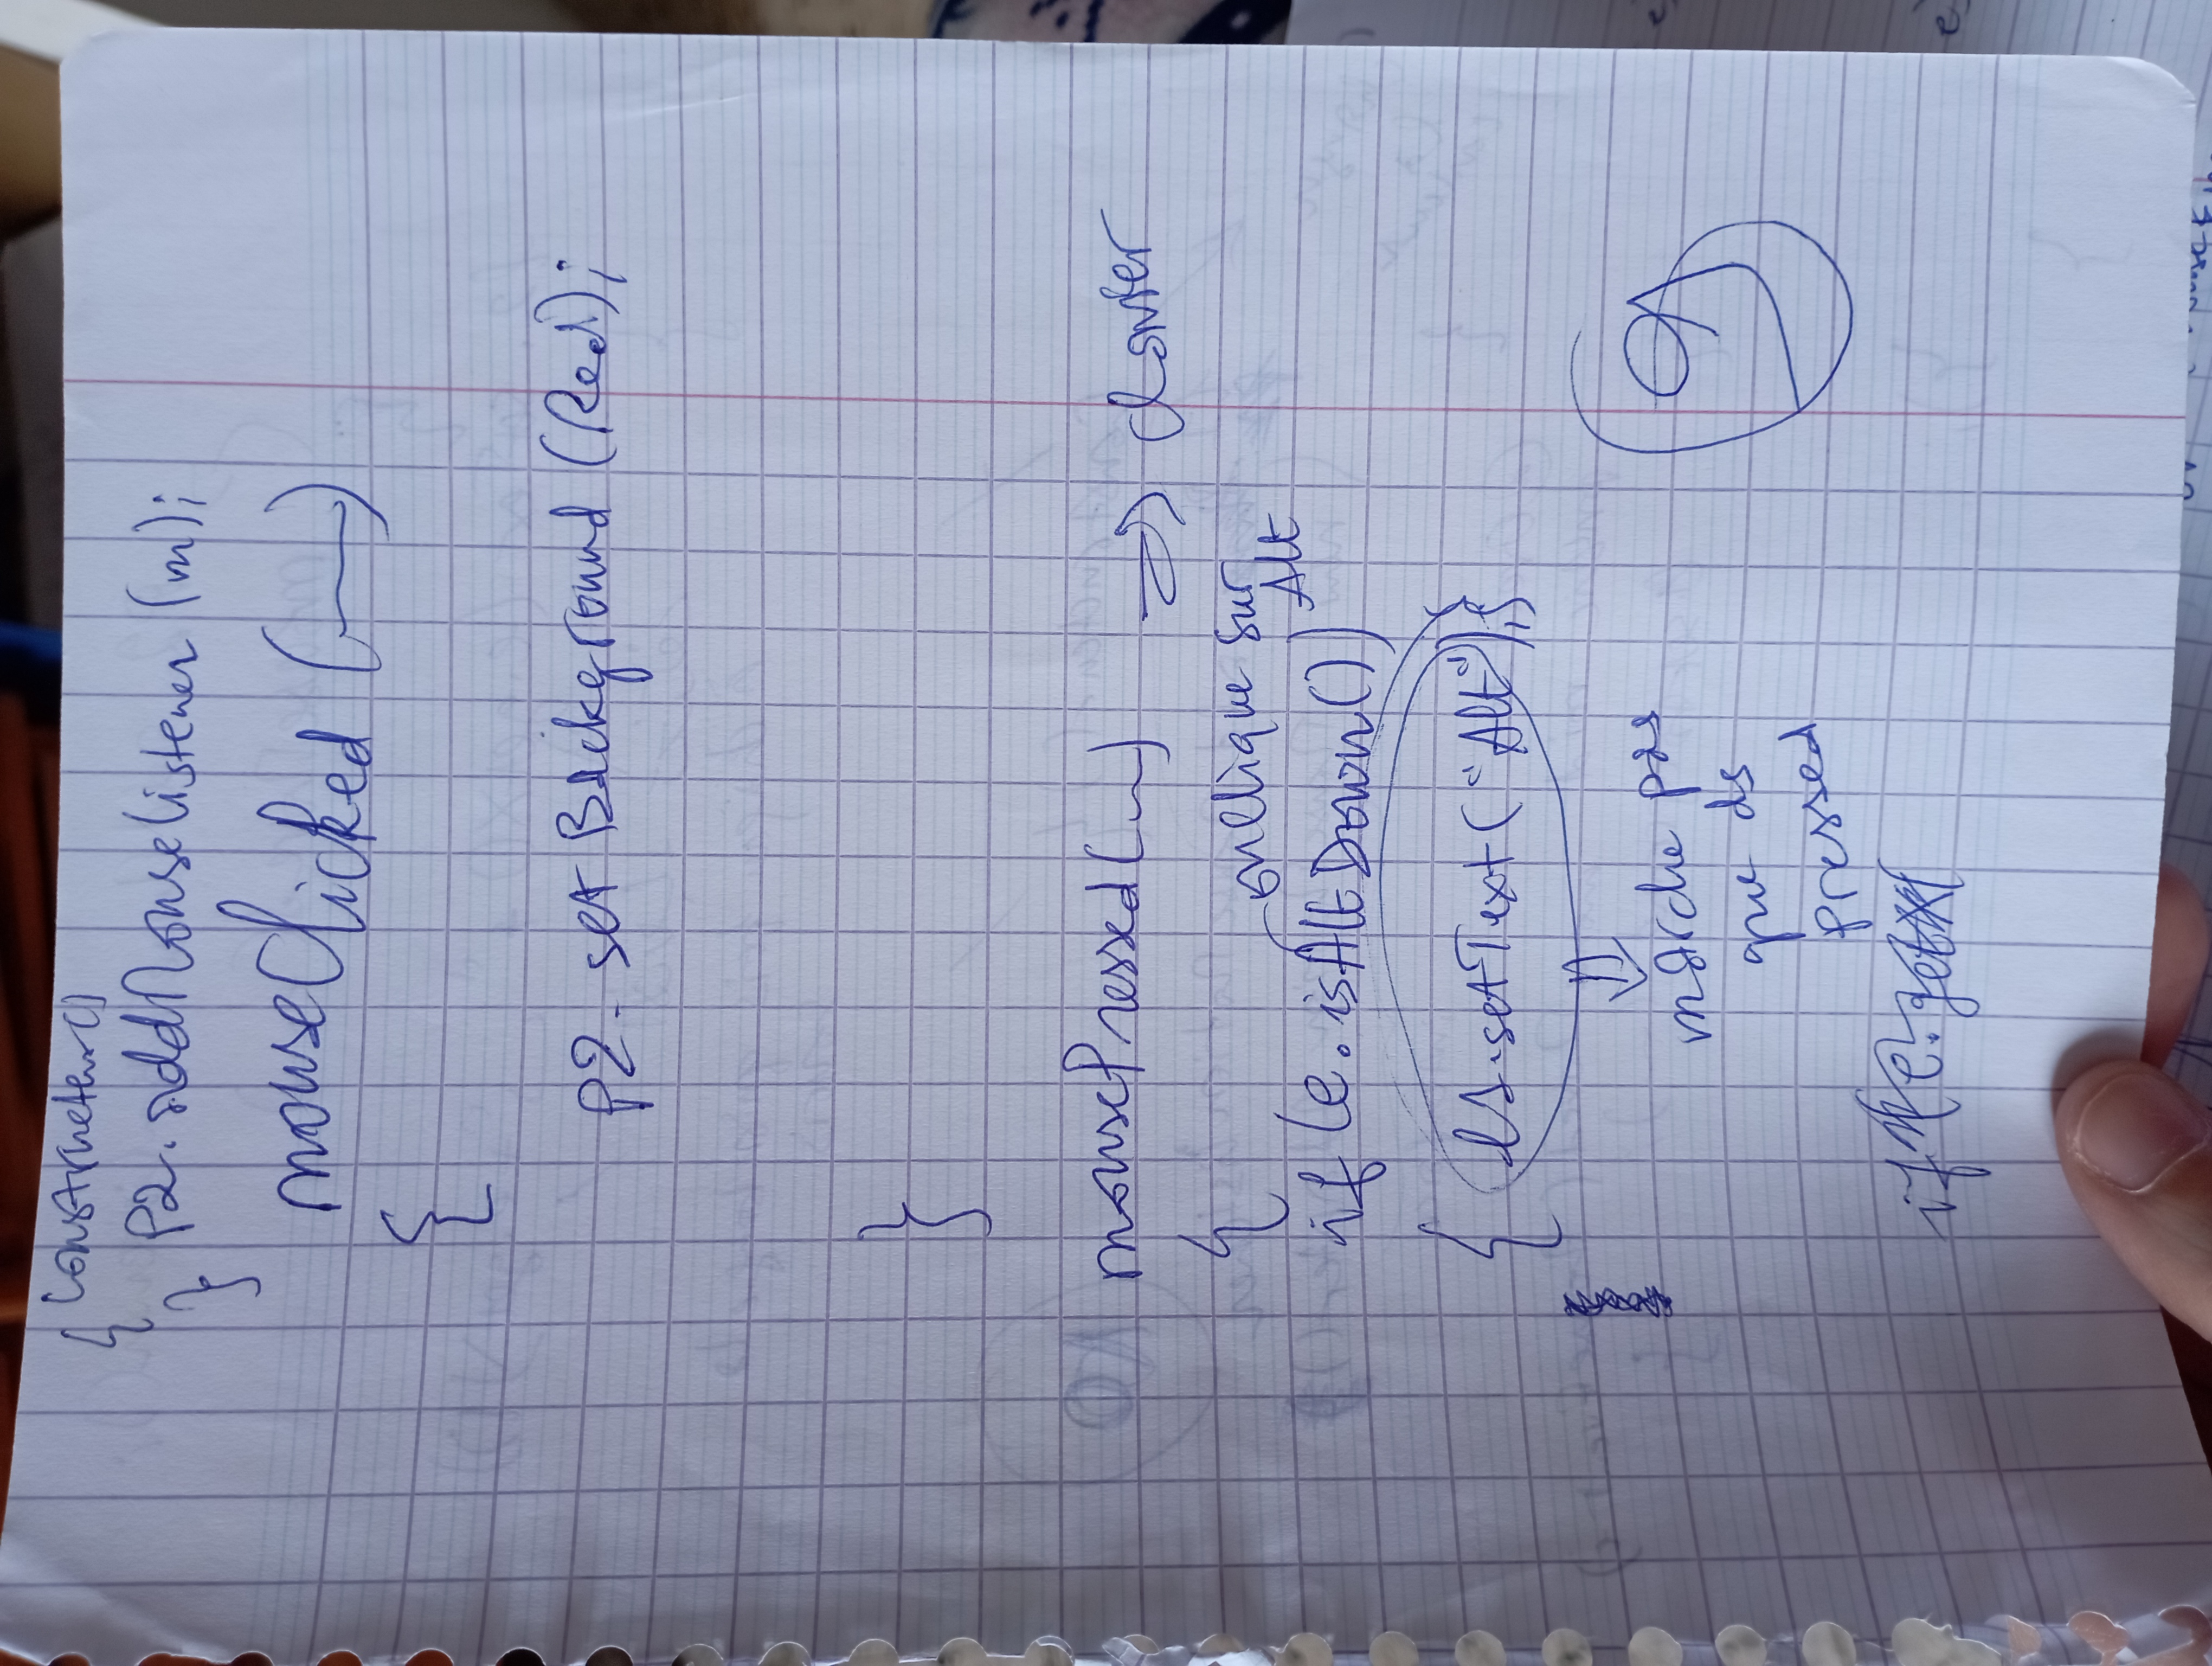 { Constructeur()
} P2.addMouseListener (m);
mouseClicked (
{
P2.setBackground (Red);
}
mousePressed ( ) ⇒
{
on clique sur
Alt
if (e.isAltDown())
{ l1.setText("Alt");}
⇓
marche pas
que ds
pressed
if (e.getX(